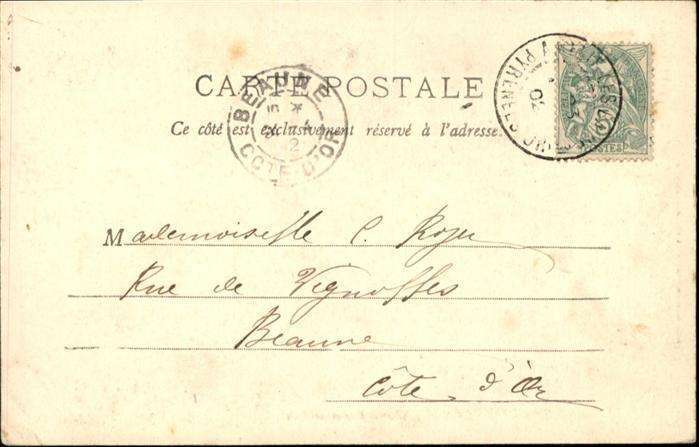 CARTE POSTALE
Ce côté est exclusivement réservé à l'adresse.
BEAUNE
COTE D'OR
POSTES
Mademoiselle C. Royer
Rue de Vignolles
Beaune
Côte d'Or